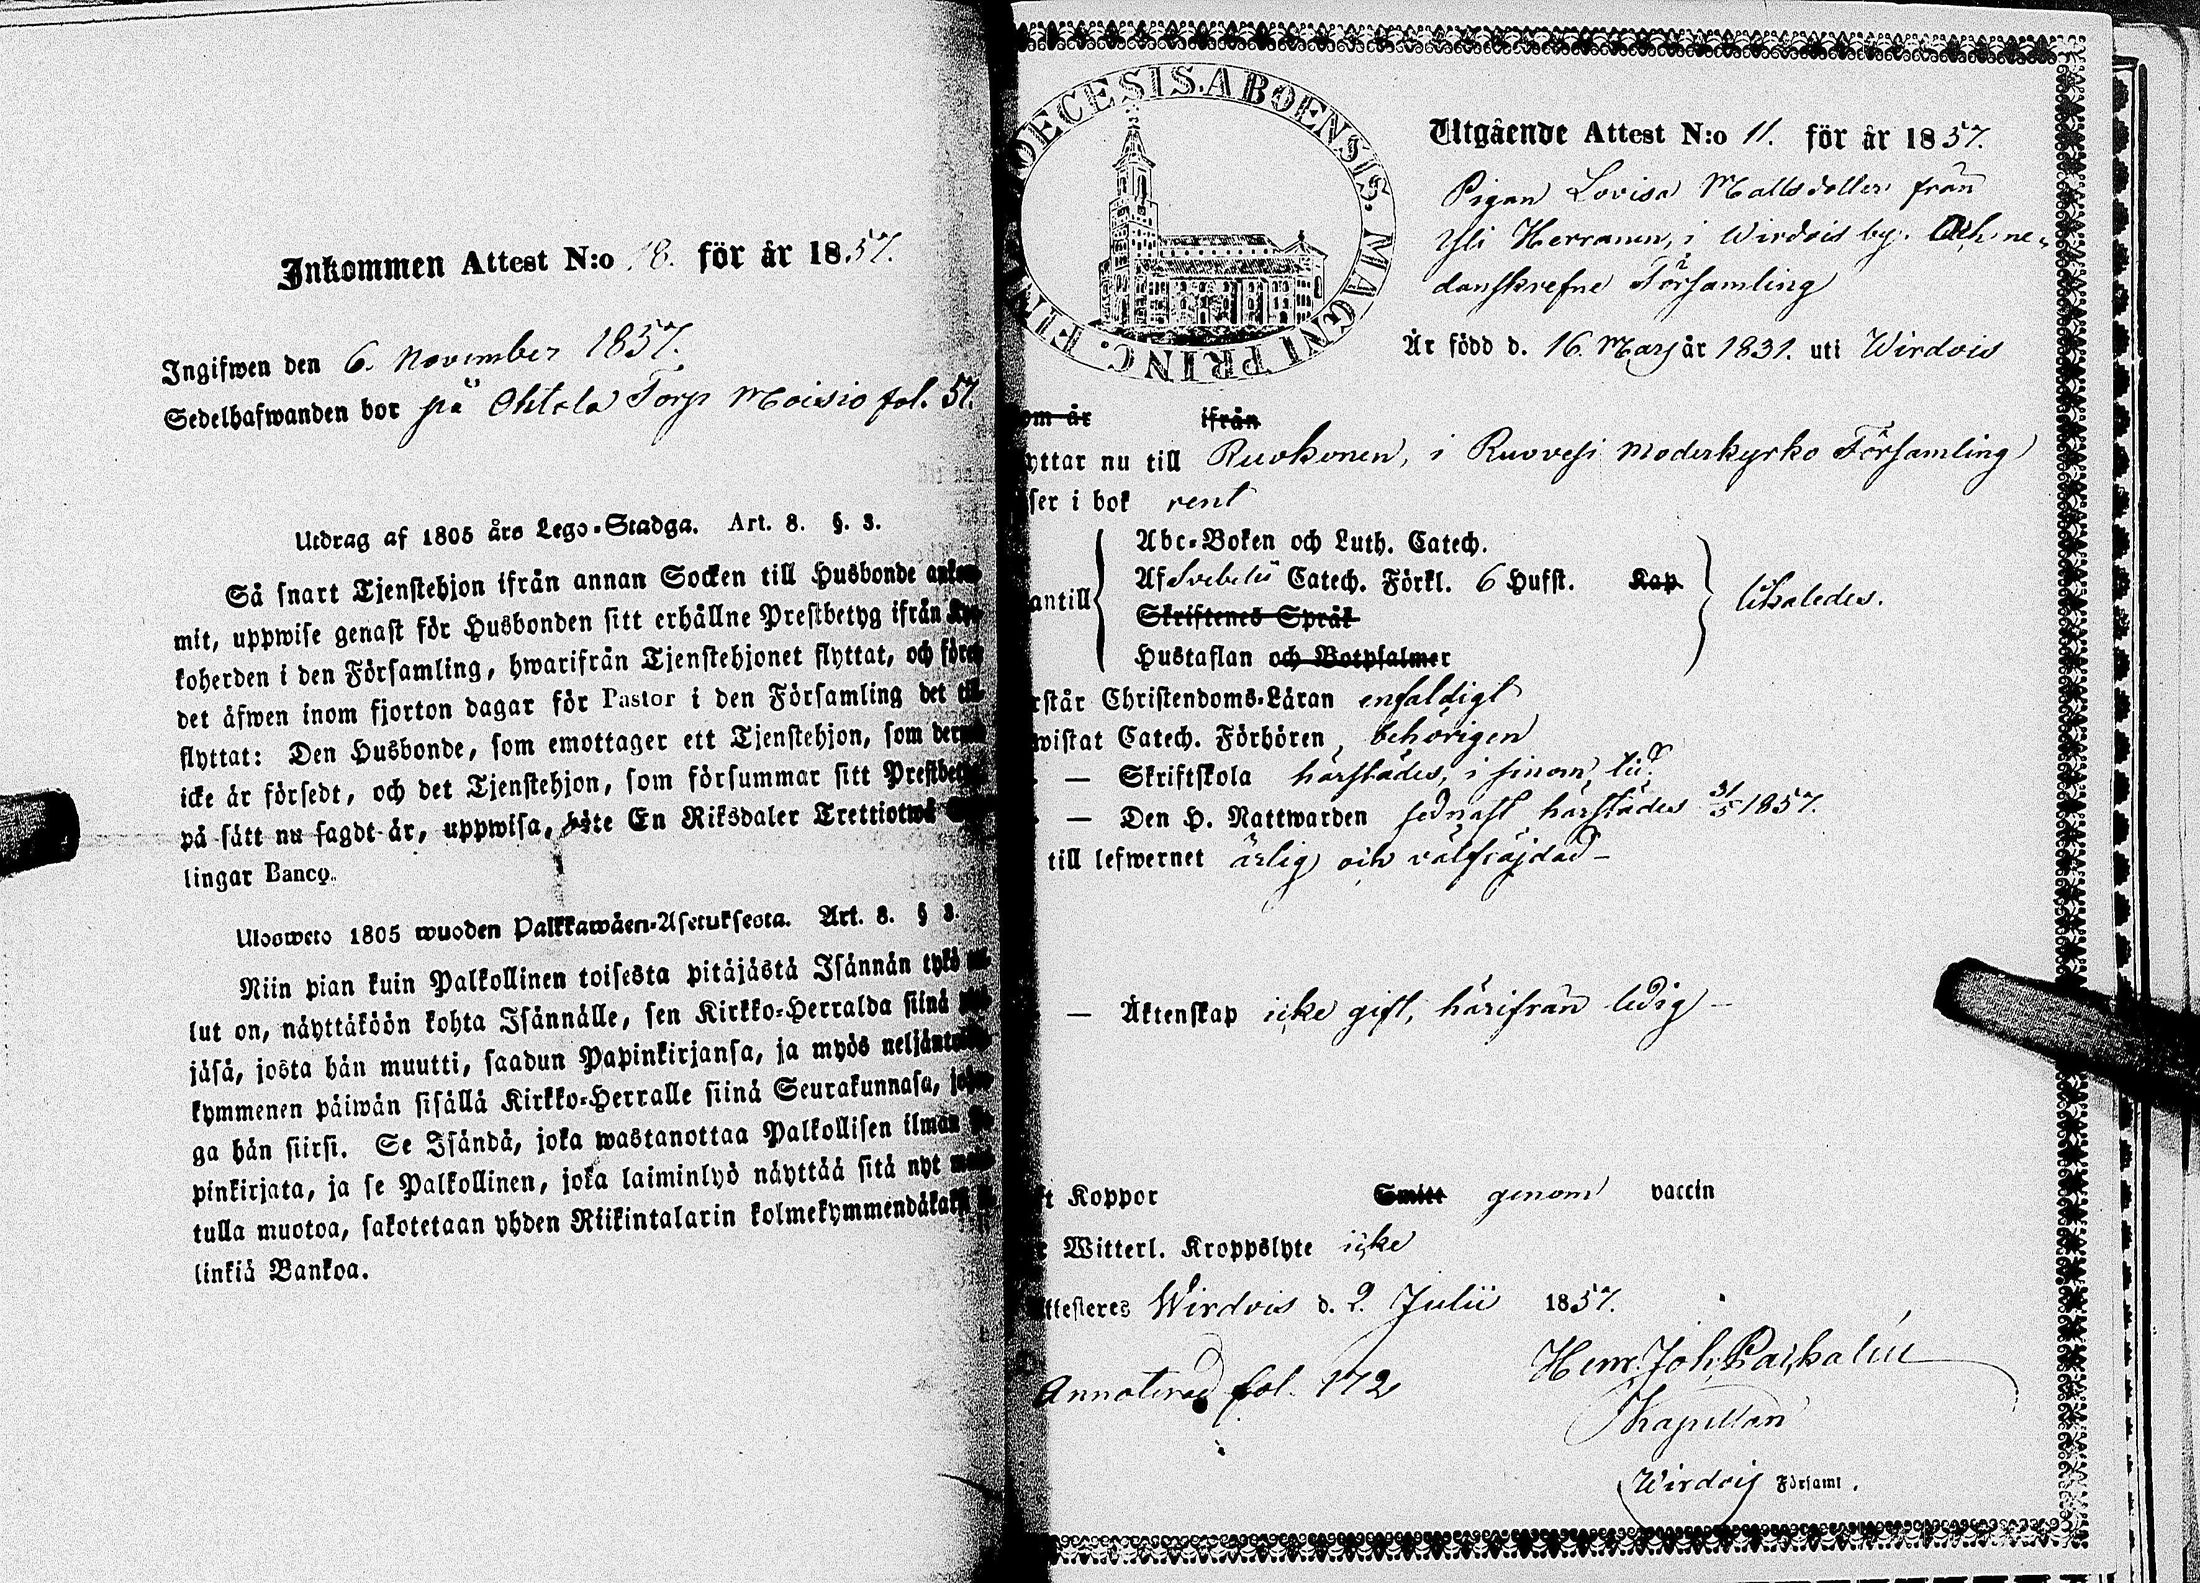 Inkommen Attest N:o 18. för år 1857.
Ingifwen den 6. November 1857.
Sedelhafwanden bor på Ohtola Torp Moisio fol. 57.
Utdrag af 1805 års Lego-Stadga. Art. 8. §. 3.
Så snart Tjenstehjon ifrån annan Socken till Husbonde
mit, uppwise genast för Husbonden sitt erhållne Prestbetyg ifrån
koherden i den Församling, hwarifrån Tjenstehjonet flyttat, och
det äfwen inom fjorton dagar för Pastor i den Församling det
flyttat: Den Husbonde, som emottager ett Tjenstehjon, som
icke är försedt, och det Tjenstehjon, som försummar sitt
på sätt nu sagdt är, uppwisa, böte En Riksdaler Trettiotwå
lingar Banco.
Ulosweto 1805 wuoden Palkkawäen-Asetuksesta. Art. 8. § 3.
Niin pian kuin Palkollinen toisesta pitäjästä Isännän tykö
lut on, näyttäköön kohta Isännälle, sen Kirkko-Herralda siinä
jäsä, josta hän muutti, saadun Papinkirjansa, ja myös
kymmenen päiwän sisällä Kirkko-Herralle siinä Seurakunnasa,
ga hän siirsi. Se Isändä, joka wastanottaa Palkollisen ilman
pinkirjata, ja se Palkollinen, joka laiminlyö näyttää sitä nyt
tulla muotoa, sakotetaan yhden Riikintalarin
linkiä Bankoa.
DIOECESIS. ABOENSIS. MAGNI PRINC.
Utgående Attest N:o 11. för år 1857.
Pigan Lovisa Mattsdotter från
Yli Herranen, i Wirdois by
danskrefne Församling
Är född d. 16 Mars år 1831. uti Wirdois
om år ifrån
yttar nu till Ruokonen, i Ruovesi Moderkyrko Församling
ser i bok rent
antill
Abc-Boken och Luth. Catech.
Af Svebelii Catech. Förkl. 6 Hufst. Kap
Skriftenes Språk
Hustaflan och Botpsalmer
likaledes.
rstår Christendoms-Läran enfaldigt
wistat Catech. Förhören, behörigen
— Skriftskola härstädes, i sinom tid
— Den H. Nattwarden sednast härstädes 31/5 1857.
till lefwernet ärlig och välfräjdad —
— Äktenskap icke gift, härifrån ledig —
ft Koppor Smitt genom vaccin
Witterl. Kroppslyte icke
Attesteres Wirdois d. 2. Julii 1857.
Henr. Joh.
Annoterad fol. 172
Kapellan
Wirdois Församl.